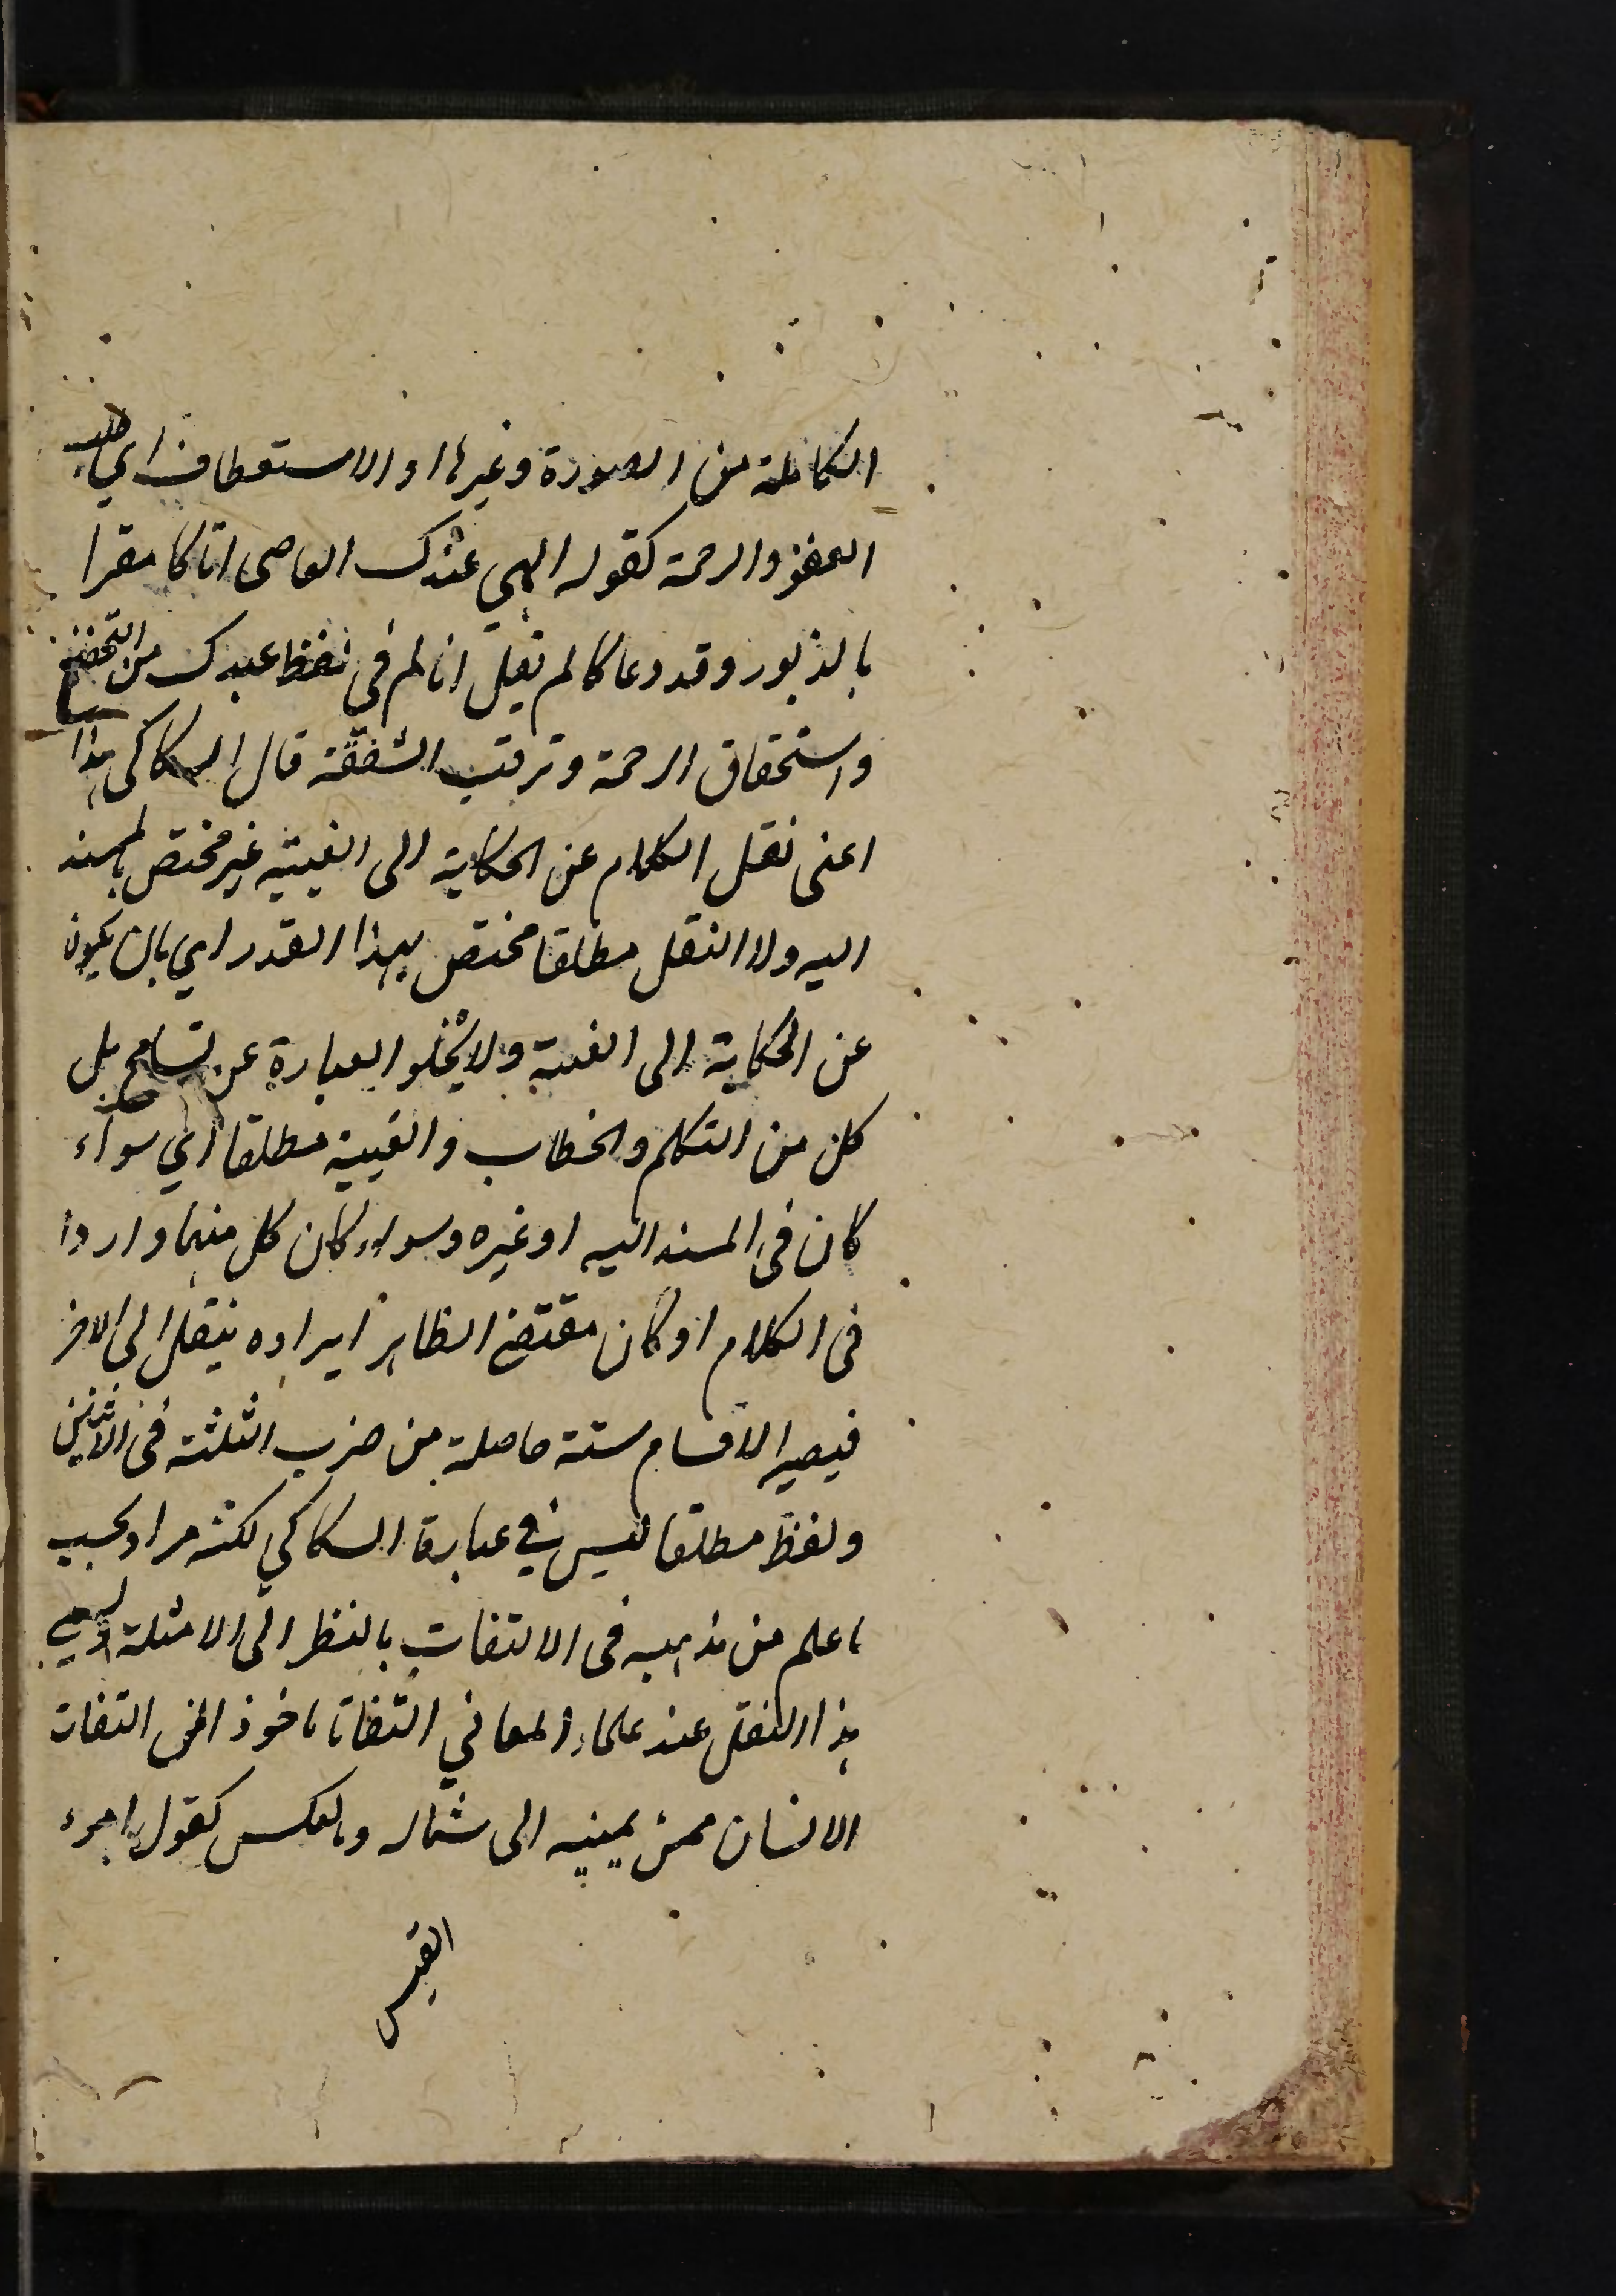 الكاملة من الصورة وغيرها او الاستعطاف اي طلب
العفو والرحمة كقوله الهي عندك العاصي اتاكا مقرا
بالذنوب وقد دعاكا لم يقل انا لم في لفظ عبدك من التخضع
واستحقاق الرحمة وترقب الشفقة قال السكاكي هذا
اعني نقل الكلام عن الحكاية الى الغيبة غير مختص بالمسند
اليه ولا النقل مطلقا مختص بهذا القدر اي بان يكون
عن الحكاية الى الغيبة ولا يخلو العبارة عن تسامح بل
كل من التكلم والخطاب والغيبة مطلقا اي سواء
كان في المسند اليه او غيره وسواء كان كل منها واردا
في الكلام او كان مقتضى الظاهر ايراده ينقل الى الاخر
فيصير الاقسام ستة حاصلة من ضرب الثلثة في الاثنين
ولفظ مطلقا ليس في عبارة السكاكي لكنه مراد بحسب
ما علم من مذهبه في الالتفات بالنظر الى الامثلة ويسمى
هذا النقل عند علماء المعاني التفاتا ماخوذ من التفات
الانسان من يمينه الى شماله وبالعكس كقول امرء
القيس